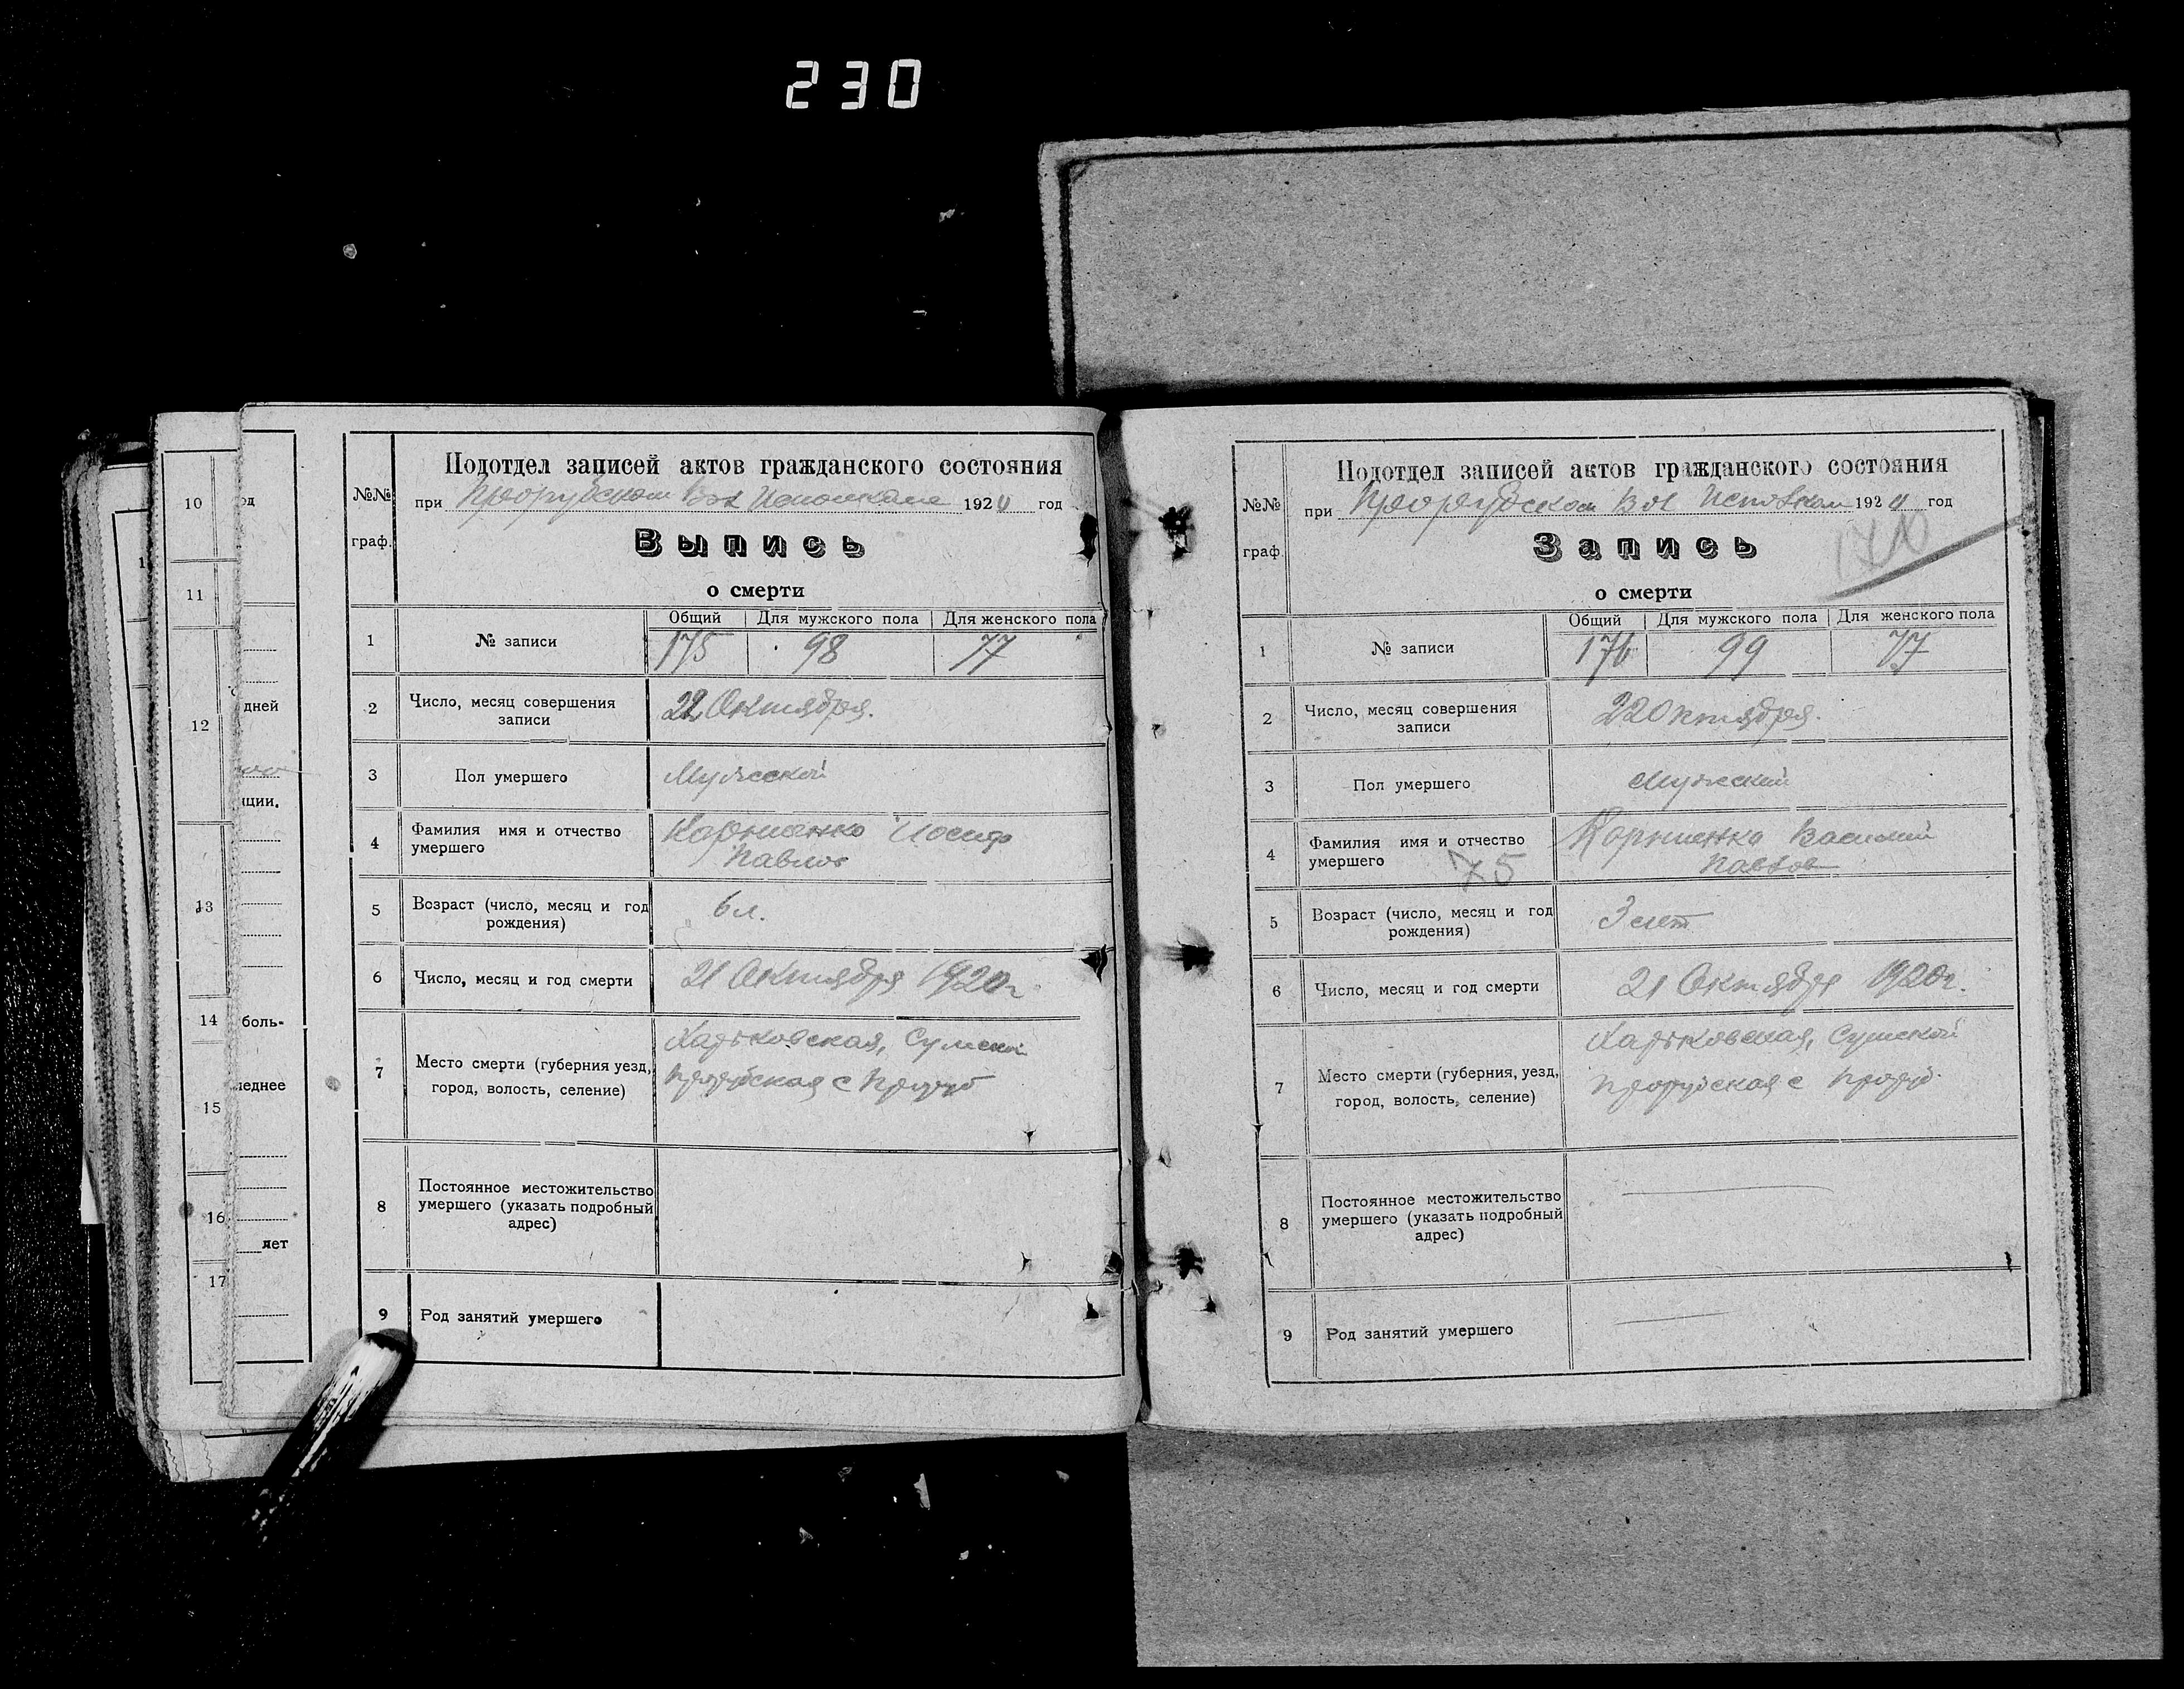 230
10
11
12
13
14
15
16
17
од
дней
ции.
боль-
леднее
лет
№№ граф.
Подотдел записей актов гражданского состояния
при Прорубском Вол Исполкоме 1920 год
Выпись
о смерти
Общий Для мужского пола Для женского пола
1 № записи 175 98 77
2 Число, месяц совершения записи 22 Октября.
3 Пол умершего Мужской
4 Фамилия имя и отчество умершего Иосиф
Павлов
5 Возраст (число, месяц и год рождения) 6 л.
6 Число, месяц и год смерти 21 Октября 1920 г.
7 Место смерти (губерния уезд, город, волость, селение) Харьковская, Сумской
Прорубская с Проруб
8 Постоянное местожительство умершего (указать подробный адрес)
9 Род занятий умершего
№№ граф.
Подотдел записей актов гражданского состояния
при Прорубском Вол Исполком 1920 год
Запись
о смерти
Общий Для мужского пола Для женского пола
1 № записи 176 99 77
2 Число, месяц совершения записи 22 Октября.
3 Пол умершего Мужской
4 Фамилия имя и отчество умершего 75 Василий
Павлов
5 Возраст (число, месяц и год рождения) 3 лет
6 Число, месяц и год смерти 21 Октября 1920 г.
7 Место смерти (губерния, уезд, город, волость, селение) Харьковская, Сумской
Прорубская с Проруб.
8 Постоянное местожительство умершего (указать подробный адрес)
9 Род занятий умершего